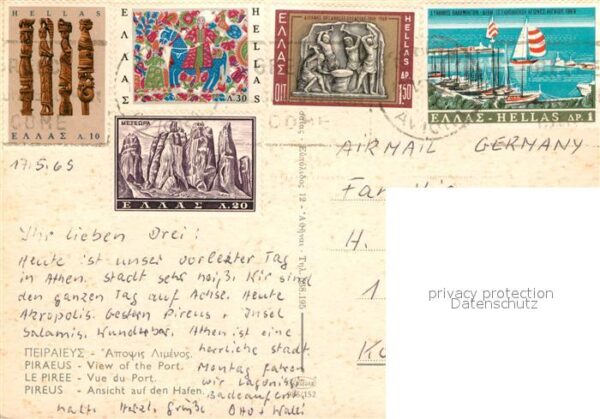 HELLAS
ΕΛΛΑΣ Λ.10
ΕΛΛΑΣ
HELLAS
Λ.30
ΕΛΛΑΣ
HELLAS
ΟΙΤ
ΔΡ. 1,50
ΕΛΛΑΣ-HELLAS ΔΡ. 1
COME
ΜΕΤΕΩΡΑ
ΕΛΛΑΣ Λ.20
17.5.69
AIRMAIL GERMANY
Fam
H.
1
Ihr lieben Drei!
Heute ist unser vorletzter Tag
in Athen. Stadt sehr heiß. Wir sind
den ganzen Tag auf Achse. Heute
Akropolis. Gestern Pireus + Insel
Salamis. Wunderbar. Athen ist eine
herrliche Stadt
Montag fahren
wir
Badeaufent
halt. Herzl. Grüße Otto +
ΠΕΙΡΑΙΕΥΣ - Ἄποψις Λιμένος.
PIRAEUS - View of the Port.
LE PIREE - Vue du Port.
PIREUS - Ansicht auf den Hafen.
12 - Ἀθῆναι - Τηλ.
privacy protection
Datenschutz